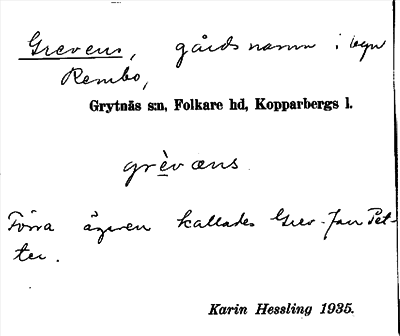 Grevens, gårdsnamn i byn
Rembo,
Grytnäs s:n, Folkare hd, Kopparbergs l.
grèvæns
Förra ägaren kallades Grev-Jan Pet-
ter.
Karin Hessling 1935.